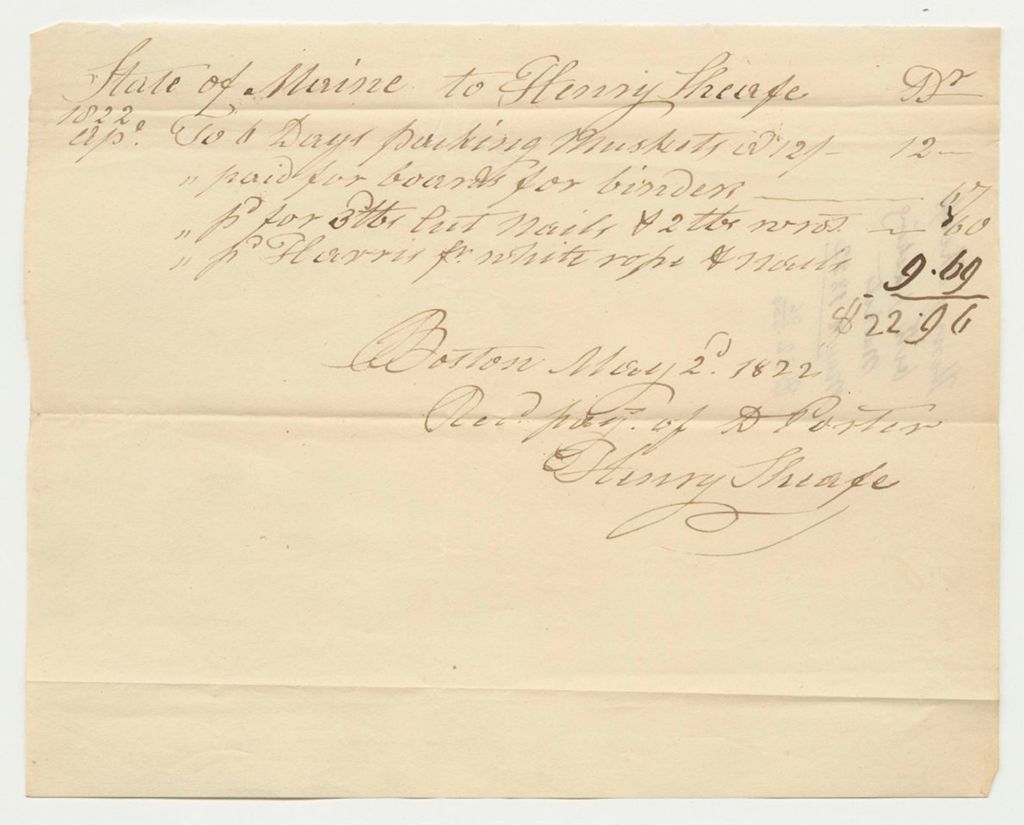 State of Maine to Henry Sheafe Dr
1822
Apl. To 6 Days packing Muskets @ 12/- 12 —
" paid for boards for binders — 67
" pd for 3 lbs Cut Nails & 2 lbs wrot. — 60
" pd Harris fr white rope & nails 9.69
$22.96
Boston May 2d. 1822
Recd pay. of D Porter
Henry Sheafe